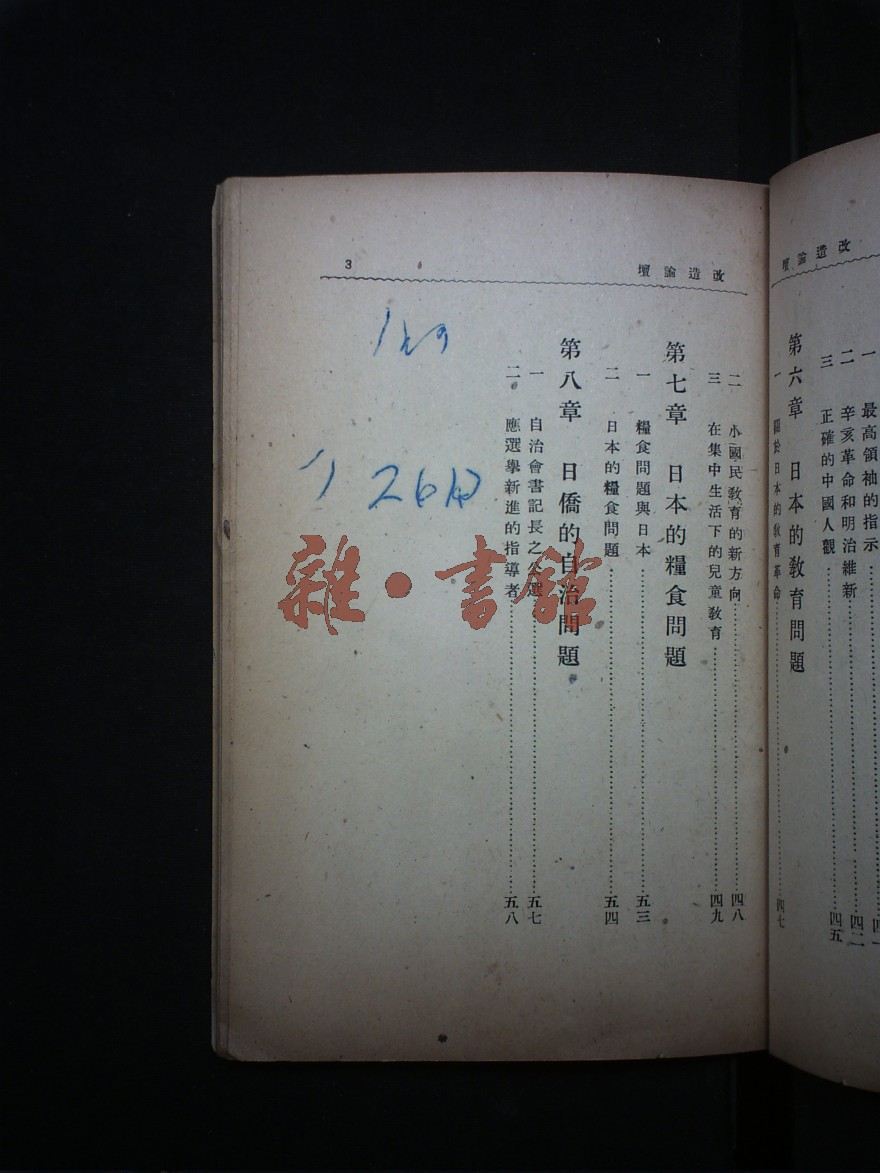 改造論壇
一　最高領袖的指示
二　辛亥革命和明治維新……四二
三　正確的中國人觀……四五
第六章　日本的教育問題
一　關於日本的教育革命……四七
改造論壇
3
二　小國民教育的新方向……四八
三　在集中生活下的兒童教育……四九
第七章　日本的糧食問題
一　糧食問題與日本……五三
二　日本的糧食問題……五四
第八章　日僑的自治問題
一　自治會書記長之公選……五七
二　應選舉新進的指導者……五八
260
雜·書館